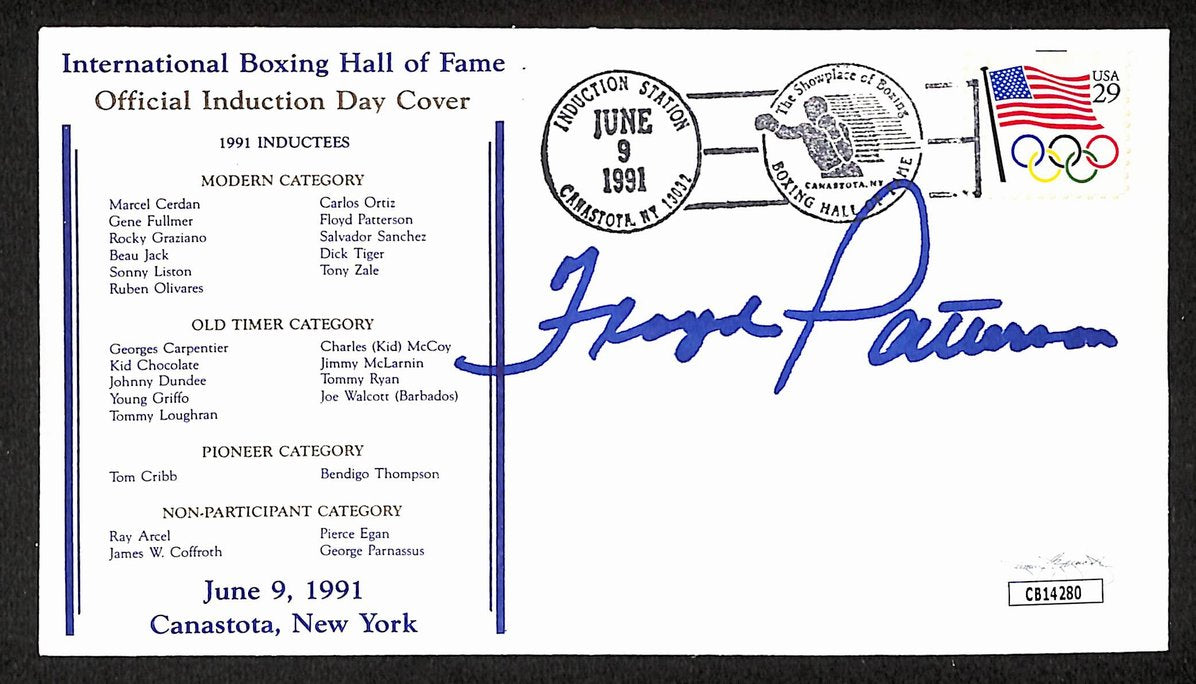 International Boxing Hall of Fame
Official Induction Day Cover
1991 INDUCTEES
MODERN CATEGORY
Marcel Cerdan
Gene Fullmer
Rocky Graziano
Beau Jack
Sonny Liston
Ruben Olivares
Carlos Ortiz
Floyd Patterson
Salvador Sanchez
Dick Tiger
Tony Zale
OLD TIMER CATEGORY
Georges Carpentier
Kid Chocolate
Johnny Dundee
Young Griffo
Tommy Loughran
Charles (Kid) McCoy
Jimmy McLarnin
Tommy Ryan
Joe Walcott (Barbados)
PIONEER CATEGORY
Tom Cribb
Bendigo Thompson
NON-PARTICIPANT CATEGORY
Ray Arcel
James W. Coffroth
Pierce Egan
George Parnassus
June 9, 1991
Canastota, New York
INDUCTION STATION
JUNE
9
1991
CANASTOTA, NY 13032
The Showplace of Boxing
CANASTOTA, NY
BOXING HALL OF FAME
USA
29
Floyd Patterson
CB14280